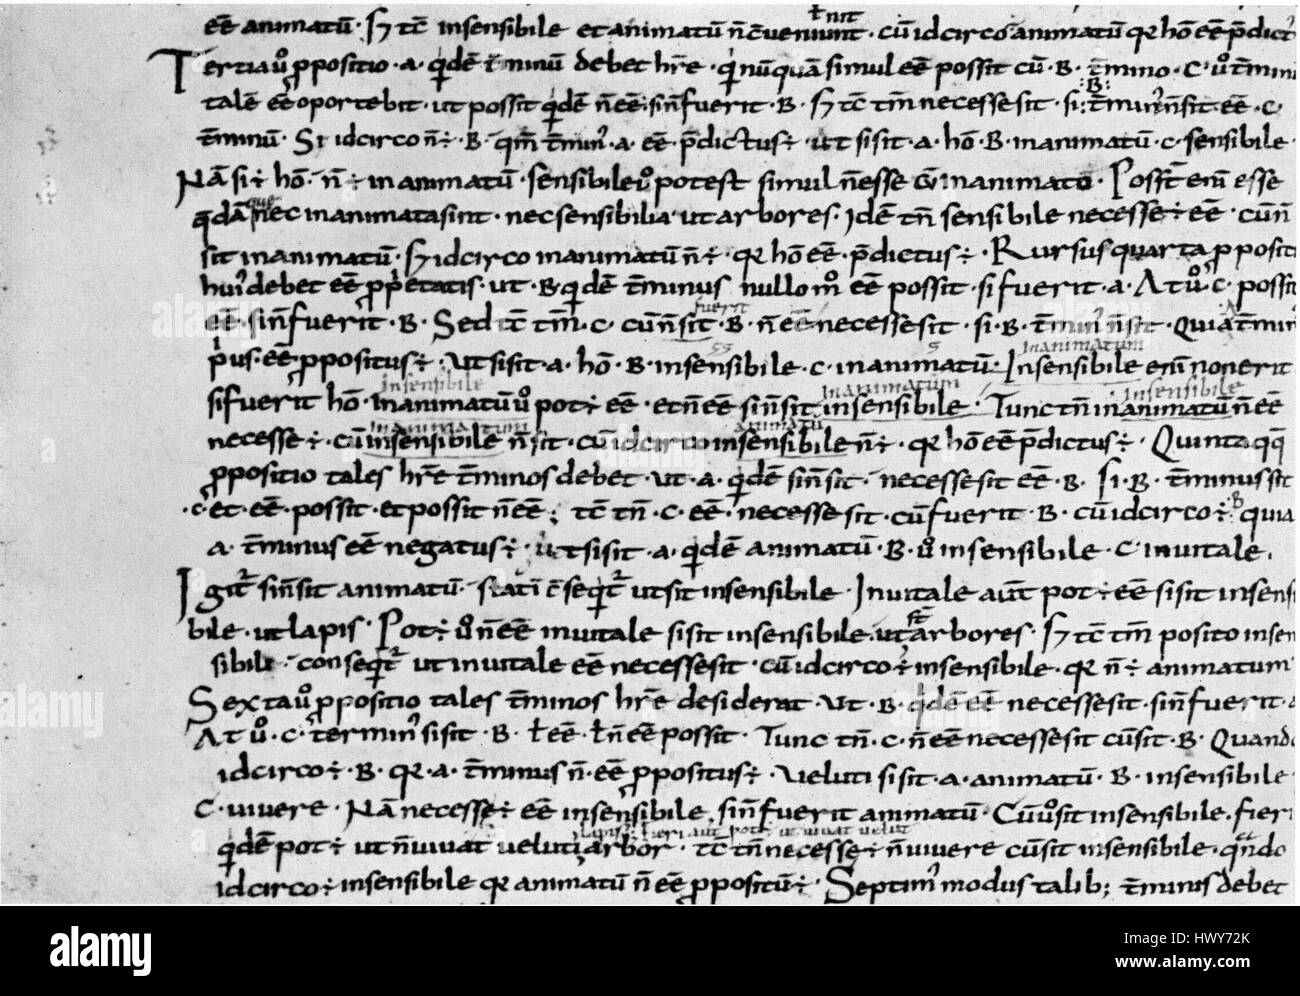 eē animatū · Sꝫ tc̄ insensibile et animatū n̄ c̄ueniunt · cū idcirco animatū qꝛ hō eē p̄dict
Tertia ūo ꝓpositio · a · qͥdē t̄minū debet hr̄e · qͥ nūquā simul eē possit cū · B · t̄mino · C · ūo t̄minū
talē eē oportebit · ut possit qͥdē n̄ eē · si n̄ fuerit · B · Sꝫ tc̄ tm̄ necesse sit · si · t̄min n̄ sit · eē · C
t̄minū · Si idcirco n̄ ē · B · qm̄ t̄min · a · eē p̄dictus ē · ut si sit · a · hō · B · inanimatū · c · sensibile ·
Nā si ē hō · n̄ ē inanimatū · sensibile ūo potest simul n̄ esse cū inanimato · Poss̄t enī esse
qͥdā nec inanimata sint · nec sensibilia · ut arbores · Idē tn̄ sensibile necesse ē eē · cū n̄
que
sit inanimatū · Sꝫ idcirco inanimatū n̄ ē · qꝛ hō eē · p̄dictus ē · Rursus quarta ꝓposit
debet eē ꝓp̄etatis · ut · B · qͥdē t̄minus nullo mō eē possit · si fuerit · a · At ūo · C · possit
eē · si n̄ fuerit · B · Sed tc̄ tm̄ · c · cū n̄ sit · B · n̄ eē necesse sit · si · B · t̄min n̄ sit · Quia t̄min
fuerit
p̄us · eē ꝓpositus ē · ut si sit · a · hō · B · insensibile · c · inanimatū · Insensibile enī non erit
inanimatum
si fuerit hō · inanimatū ūo pot ē eē · et n̄ eē si n̄ sit insensibile · Tunc tn̄ inanimatū n̄ eē
insensibile inanimatum insensibile
necesse ē · cū insensibile n̄ sit · cū idcirco insensibile n̄ ē · qꝛ hō eē p̄dictus ē · Quinta qq
inanimatum animatū
ꝓpositio tales hr̄e t̄minos debet · ut · a · qͥdē si n̄ sit · necesse sit eē · B · Si · B · t̄minus sit
· c · et · eē · possit · et possit n̄ eē ; tc̄ tn̄ · c · eē · necesse sit · cū fuerit · B · cū idcirco ē · B quia
a · t̄minus eē negatus ē · ut si sit · a · qͥdē animatū · B · ūo insensibile · C · inuitale ·
Igit̄ si n̄ sit animatū · statī c̄seqͥt̄ ut sit insensibile · Inuitale aūt pot ē eē si sit insensi
bile · ut lapis · Pot ē ūo n̄ eē inuitale si sit insensibile · ut arbores · Sꝫ tc̄ tm̄ posito insen
sibili · conseqͥt̄ ut inuitale eē necesse sit · cū idcirco ē insensibile · qꝛ n̄ ē animatum
Sexta ūo ꝓpositio tales t̄minos hr̄e desiderat · ut · B · qͥdē eē necesse sit · si n̄ fuerit · a
At ūo · C · terminꝰ si sit · B · ł eē · ł n̄ eē possit · Tunc tn̄ · c · n̄ eē necesse sit cū sit · B · Quando
idcirco ē · B · qꝛ · a · t̄minus n̄ · eē ꝓpositus ē · ueluti si sit · a · animatū · B · insensibile ·
C · uiuere · Nā necesse ē eē insensibile, si n̄ fuerit animatū · Cū ūo sit insensibile · fieri
qͥdē pot ē ut n̄ uiuat ueluti arbor · tc̄ tn̄ necesse ē n̄ uiuere cū sit insensibile · qn̄do
lapis · fieri aut pot ut uiuat velut
idcirco ē insensibile qꝛ animatū n̄ eē ꝓpositū ē · Septimꝰ modus talibꝫ t̄minis debet
alamy
Image ID: HWY72K
www.alamy.com